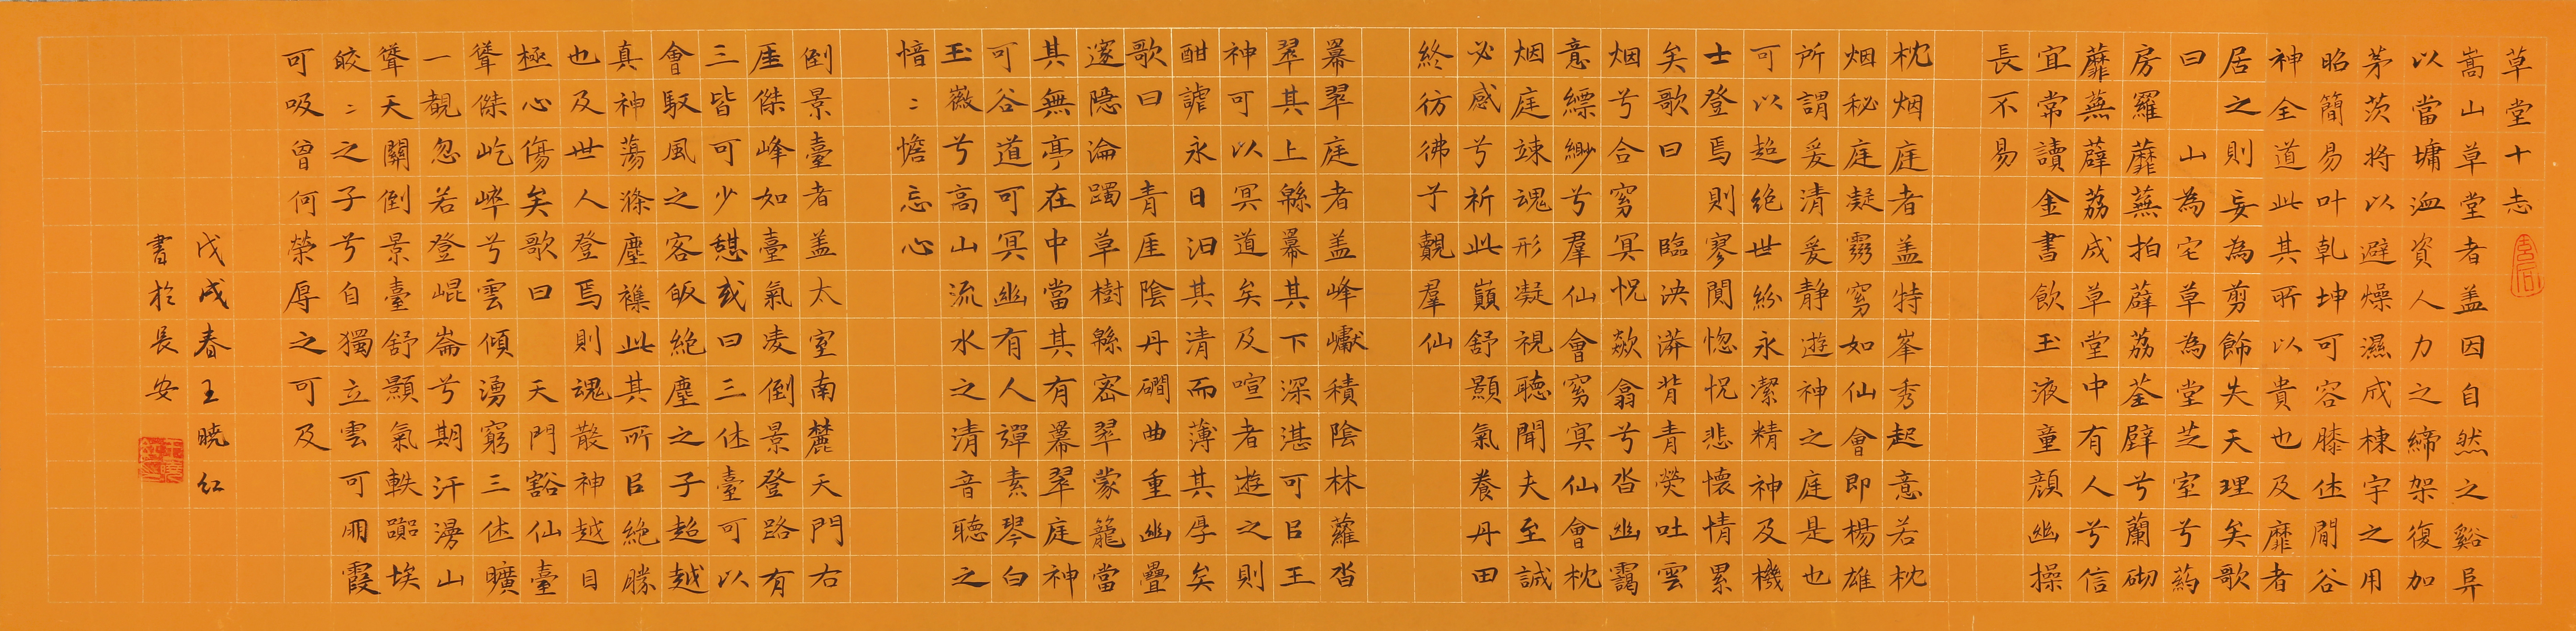 草堂十志
嵩山草堂者盖因自然之谿阜
以當墉洫資人力之締架復加
茅茨將以避燥濕成棟宇之用
昭簡易叶乹坤可容膝休閒谷
神全道此其所以貴也及靡者
居之則妄為剪飾失天理矣歌
曰 山為宅草為堂芝室兮葯
房羅蘼蕪拍薜荔荃壁兮蘭砌
蘼蕪薜荔成草堂中有人兮信
宜常讀金書飲玉液童顔幽操
長不易
枕烟庭者盖特峯秀起意若枕
烟秘庭凝窅如仙會即楊雄
所謂爰清爰静遊神之庭是也
可以超絶世紛永潔精神及機
士登焉則寥闃惚怳悲懷情累
矣歌曰 臨泱漭背青熒吐雲
烟兮合窅冥怳欻翕兮沓幽靄
意縹緲兮羣仙會窅冥仙會枕
烟庭竦魂形凝視聽聞夫至誠
必感兮祈此巔舒顥氣養丹田
終彷彿子覿羣仙
冪翠庭者盖峰巘積陰林蘿沓
翠其上緜冪其下深湛可㠯王
神可以冥道矣及喧者遊之則
酣謔永日汩其清而薄其厚矣
歌曰 青崖陰丹磵曲重幽疊
邃隱淪躅草樹緜密翠蒙籠當
其無亭在中當其有冪翠庭神
可谷道可冥幽有人彈素琴白
玉徽兮高山流水之清音聽之
愔〻憺忘心
倒景臺者盖太室南麓天門右
崖傑峰如臺氣凌倒景登路有
三皆可少憇或曰三休臺可以
會馭風之客皈絶塵之子超越
真神蕩滌塵襟此其所㠯絶勝
也及世人登焉則魂散神越目
極心傷矣歌曰 天門豁仙臺
聳傑屹崒兮雲傾湧窮三休曠
一覩忽若登崐崙兮期汗漫山
聳天關倒景臺舒顥氣軼躐埃
皎〻之子兮自獨立雲可朋霞
可吸曾何榮辱之可及
戊戌春王曉红
書於長安